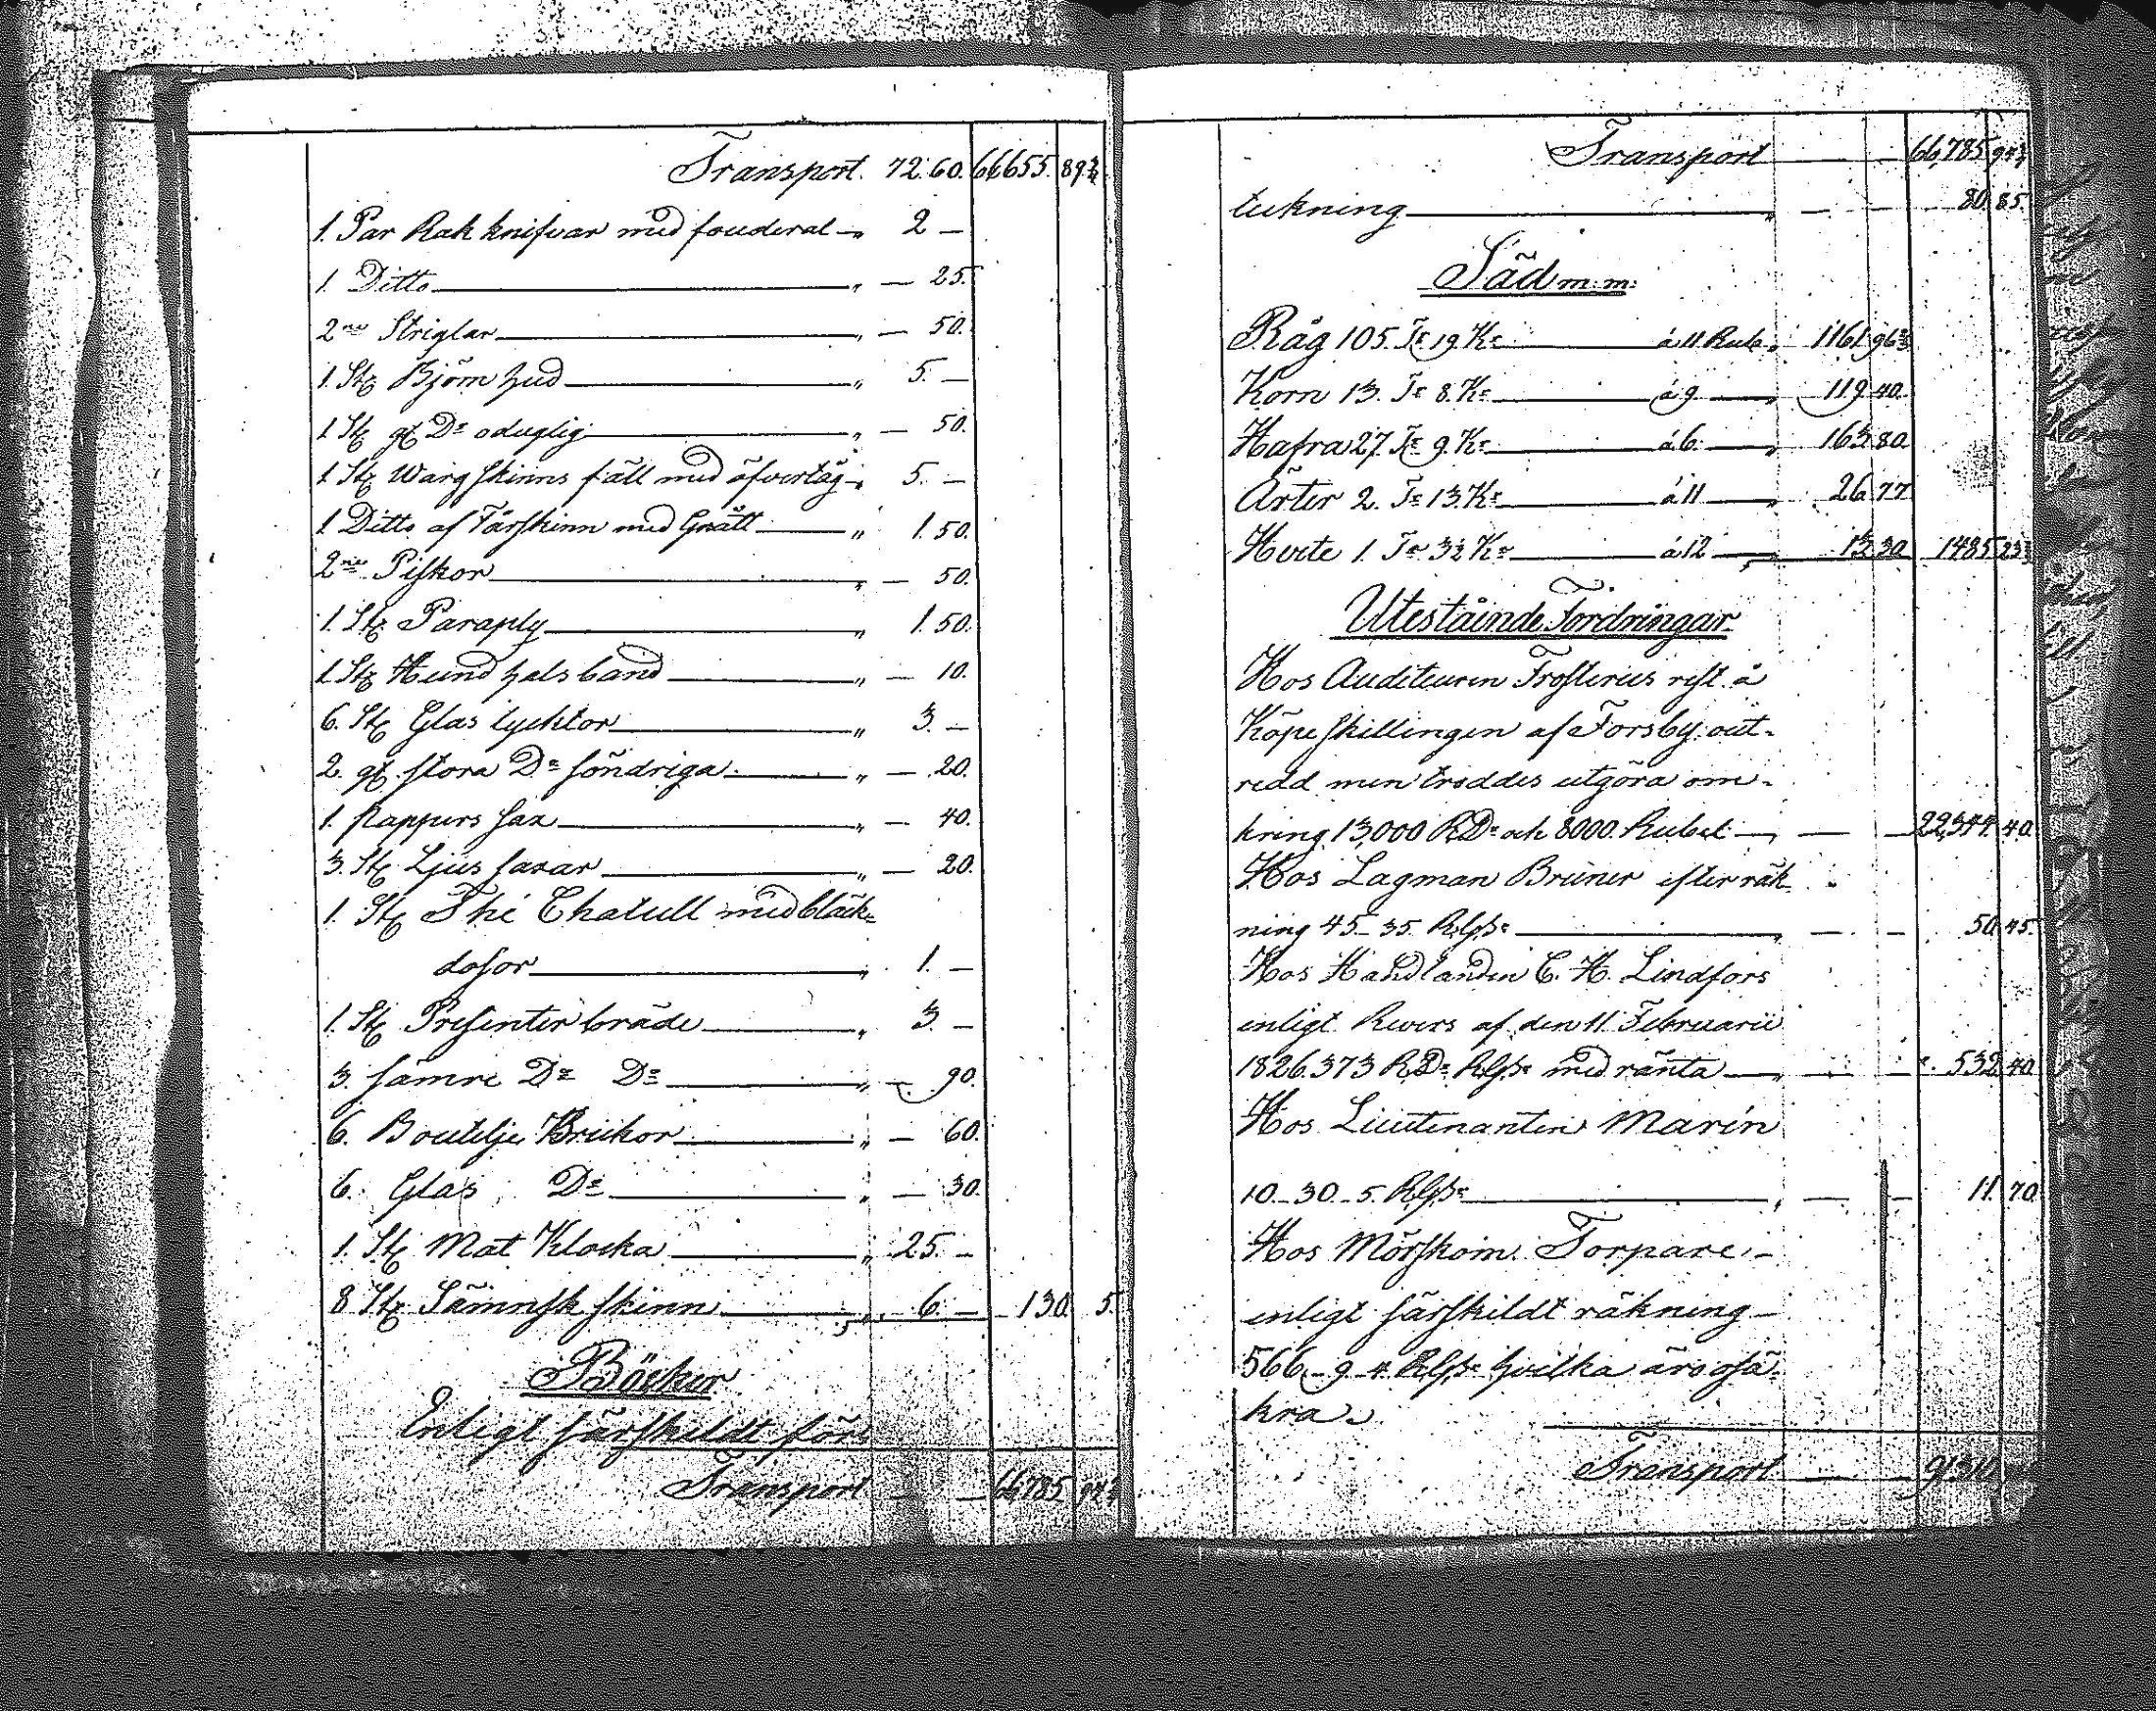 Transport. 72. 60. 66655. 89¾
1. Par Rak knifvar med fouderal — „ 2 —
1. Ditto — „ — 25.
2ne Striglar — „ — 50.
1. St. Björn hud — „ 5. —
1 St. gl Do oduglig — „ — 50.
1 St. Warg skinns fäll med öfvertåg „ 5. —
1 Ditto af Fårskinn med Grått — „ 1. 50.
2ne Piskor — „ — 50.
1. St. Paraply — „ 1. 50.
1. St. Hund hals band — „ — 10.
6. St. Glas lycktor — „ 3. —
2. gl stora Do söndriga. — „ — 20.
1. Pappers sax — „ — 40.
3. St. Ljus saxar — „ — 20.
1. St. Thé Chatull med bläck-
dosor — „ 1. —
1. St. Presenter bräde — „ 3. —
3. sämre Do Do — „ — 90.
6. Boutelje Brickor — „ — 60.
6. Glas Do — „ — 30.
1. St. Mat Klocka — „ 25. —
8 St. Sämnsk skinn — „ 6. — 130. 5.
Böcker
Enligt särskildt för-
Transport — — 66785. 94¾
Transport — — 66,785 94¾
tekning — „ — — 80. 85.
Säd m. m.
Råg 105. Tr 19 Kr — á 11 Rub. „ 1161 96⅔
Korn 13. Tr 8. Kr — á 9 — „ 119 40.
Hafra 27. Tr 9. Kr — á 6. — „ 163 80.
Ärter 2. Tr 13. Kr — á 11 — „ 26 77
Hvete 1. Tr 3½ Kr — á 12 — „ 13 30 1485 23
Utestående Fordringar
Hos Auditeuren Frosterus rest. å
Köpe skillingen af Forsby out-
redd men troddes utgöra om-
kring 13,000 RDr och 8000. Rubel — „ — — 22,344. 40.
Hos Lagman Bruner efter räk-
ning 45 – 35. RGsr — „ — — 50. 45.
Hos Handlanden C. H. Lindfors
enligt Revers af den 11 Februarii
1826. 373 RDr RGsr med ränta — „ — — 532 40.
Hos Lieutenanten Marin
10 – 30 – 5. RGsr — „ — — 11. 70.
Hos Mörskom Torpare –
enligt särskildt räkning –
566 – 9 – 4. RGsr hvilka äro osä-
kra.
Transport — —